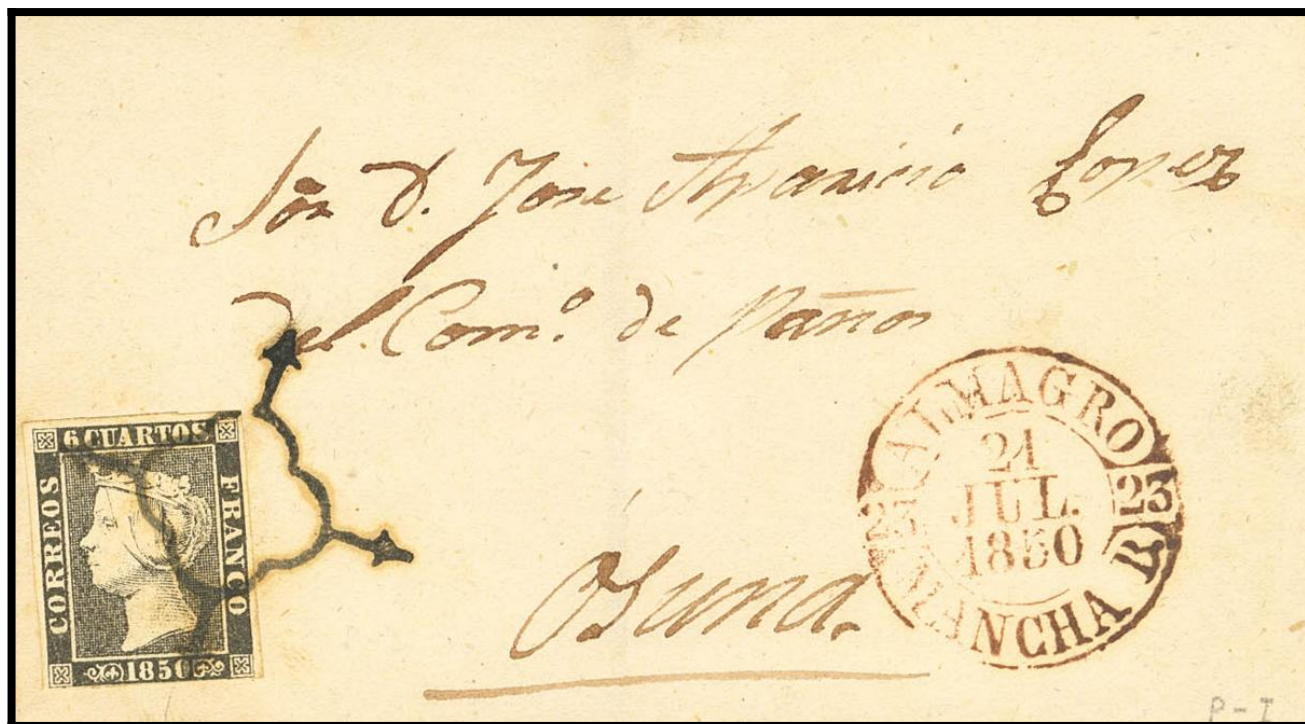 Sōr D. Jose Aparicio Lopez
del Com.º de paños
Osuna.
6 CUARTOS
CORREOS
FRANCO
1850
ALMAGRO
21
JUL.
1850
23
23
MANCHA B
P-I